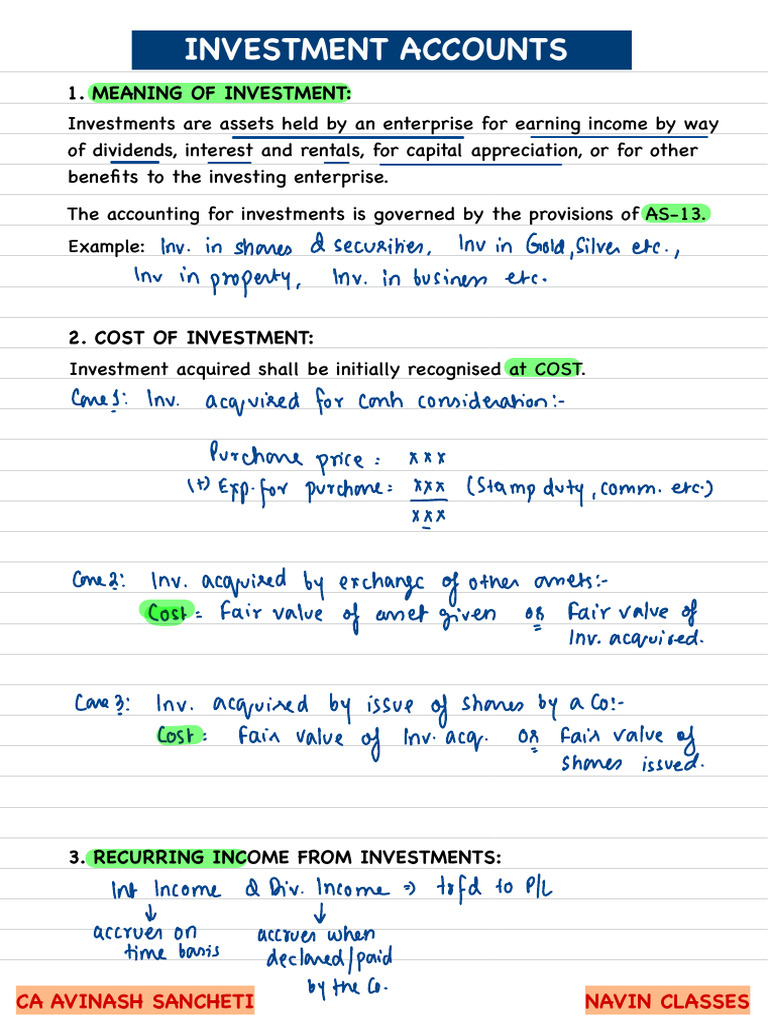 INVESTMENT ACCOUNTS
1. MEANING OF INVESTMENT:
Investments are assets held by an enterprise for earning income by way
of dividends, interest and rentals, for capital appreciation, or for other
benefits to the investing enterprise.
The accounting for investments is governed by the provisions of AS-13.
Example: Inv. in shares & securities, Inv in Gold, Silver etc.,
Inv in property, Inv. in business etc.
2. COST OF INVESTMENT:
Investment acquired shall be initially recognised at COST.
Case 1: Inv. acquired for cash consideration:-
Purchase price = xxx
(+) Exp. for purchase = xxx (Stamp duty, comm. etc.)
xxx
Case 2: Inv. acquired by exchange of other assets:-
Cost = Fair value of asset given OR Fair value of
Inv. acquired.
Case 3: Inv. acquired by issue of shares by a Co:-
Cost = Fair value of Inv. acq. OR Fair value of
shares issued.
3. RECURRING INCOME FROM INVESTMENTS:
Int Income & Div. Income => trfd to P/L
↓ ↓
accrues on accrues when
time basis declared/paid
by the Co.
CA AVINASH SANCHETI NAVIN CLASSES